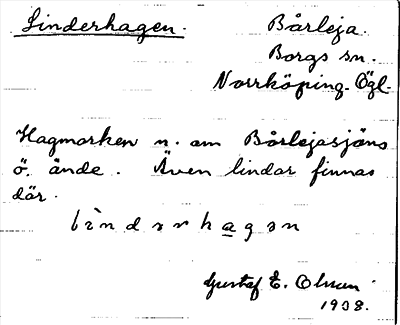 Linderhagen.
Bårleja.
Borgs sn.
Norrköping. Ögl.
Hagmarken n. om Bårlejasjöns
ö. ände. Även lindar finnas
där.
lìndərhagən
Gustaf E. Olsson
1938.